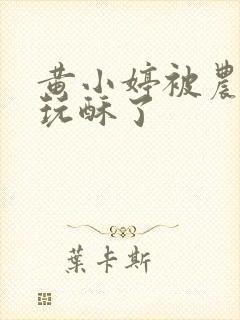 黄小婷被農
玩酥了
葉卡斯